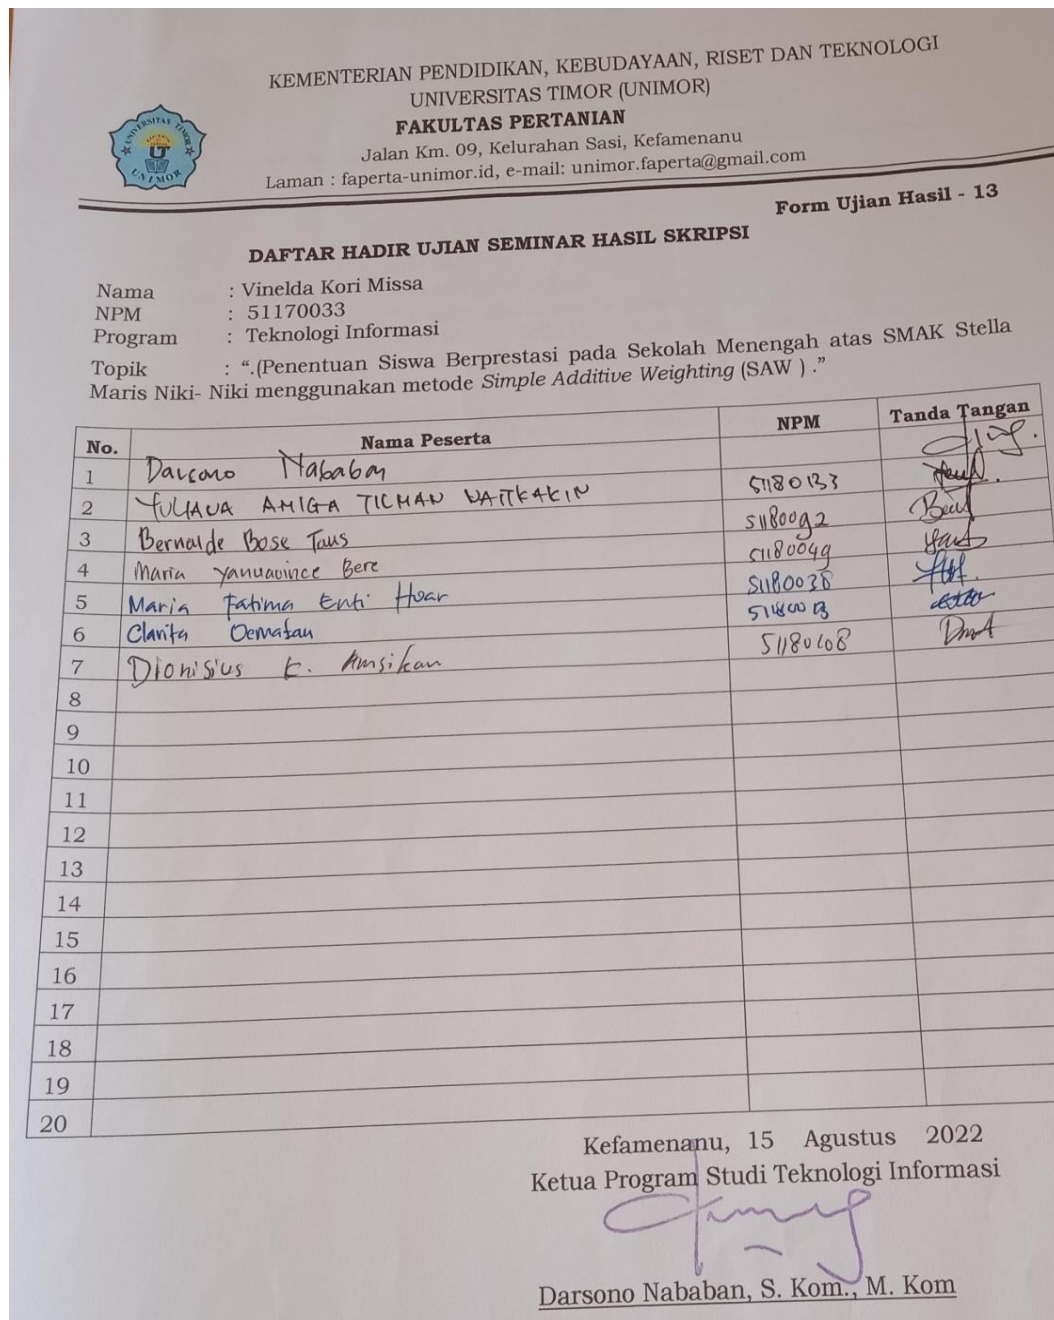 KEMENTERIAN PENDIDIKAN, KEBUDAYAAN, RISET DAN TEKNOLOGI
UNIVERSITAS TIMOR (UNIMOR)
FAKULTAS PERTANIAN
Jalan Km. 09, Kelurahan Sasi, Kefamenanu
Laman : faperta-unimor.id, e-mail: unimor.faperta@gmail.com
UNIVERSITAS TIMOR
UNIMOR
Form Ujian Hasil - 13
DAFTAR HADIR UJIAN SEMINAR HASIL SKRIPSI
Nama : Vinelda Kori Missa
NPM : 51170033
Program : Teknologi Informasi
Topik : “.(Penentuan Siswa Berprestasi pada Sekolah Menengah atas SMAK Stella
Maris Niki- Niki menggunakan metode Simple Additive Weighting (SAW ) .”
No. Nama Peserta NPM Tanda Tangan
1 Darsono Nababan
2 YULIANA AMIGA 51180133
3 Bernalde Bose Taus 51180092
4 Maria Yanuavince Bere 51180049
5 Maria Fatima Enti Hoar 51180038
6 Clarita Oematan
7 Dionisius K. Amsikan 51180108
8
9
10
11
12
13
14
15
16
17
18
19
20
Kefamenanu, 15 Agustus 2022
Ketua Program Studi Teknologi Informasi
Darsono Nababan, S. Kom., M. Kom